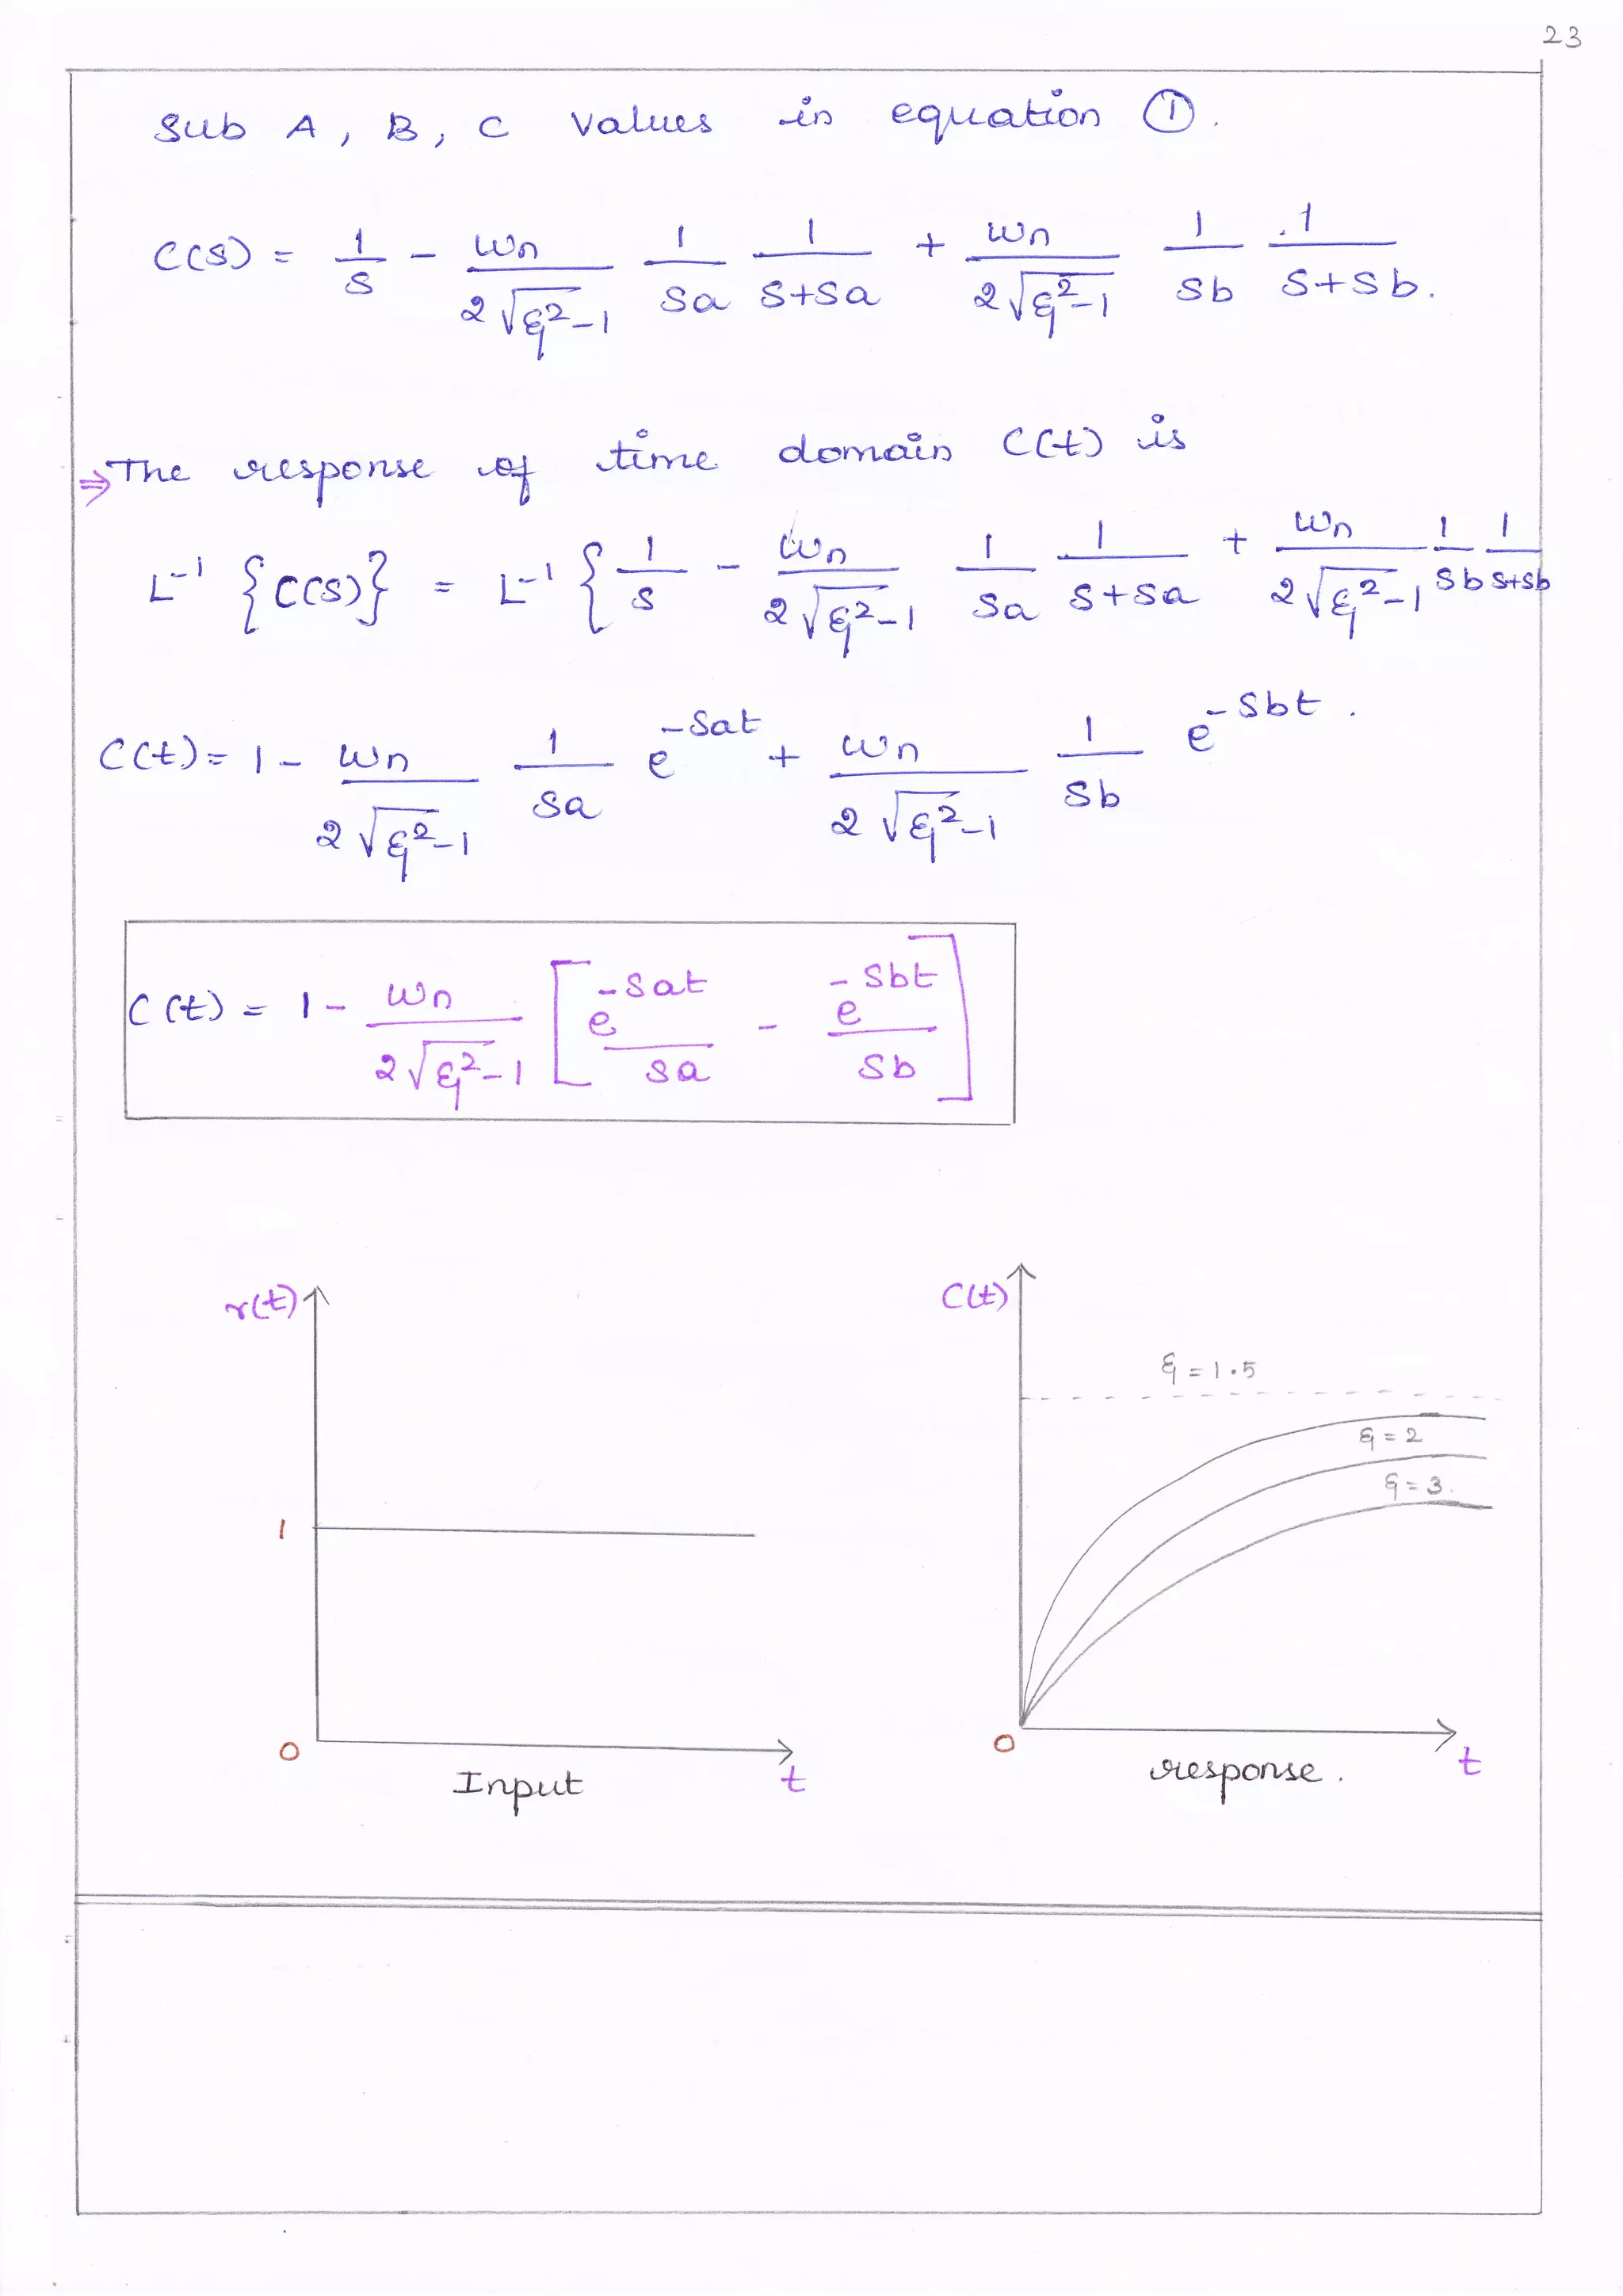 23
Sub A, B, C Values in equation ①.
C(S) = 1/S - ωn/(2√ξ²-1) 1/Sa 1/(S+Sa) + ωn/(2√ξ²-1) 1/Sb 1/(S+Sb).
⇒ The response of time domain C(t) is
L⁻¹ {C(S)} = L⁻¹ { 1/S - ωn/(2√ξ²-1) 1/Sa 1/(S+Sa) + ωn/(2√ξ²-1) 1/Sb 1/(S+Sb)
C(t) = 1 - ωn/(2√ξ²-1) 1/Sa e^(-Sat) + ωn/(2√ξ²-1) 1/Sb e^(-Sbt).
C(t) = 1 - ωn/(2√ξ²-1) [ e^(-Sat)/Sa - e^(-Sbt)/Sb ]
r(t)
1
0
t
Input
C(t)
ξ = 1.5
ξ = 2
ξ = 3.
0
t
response.